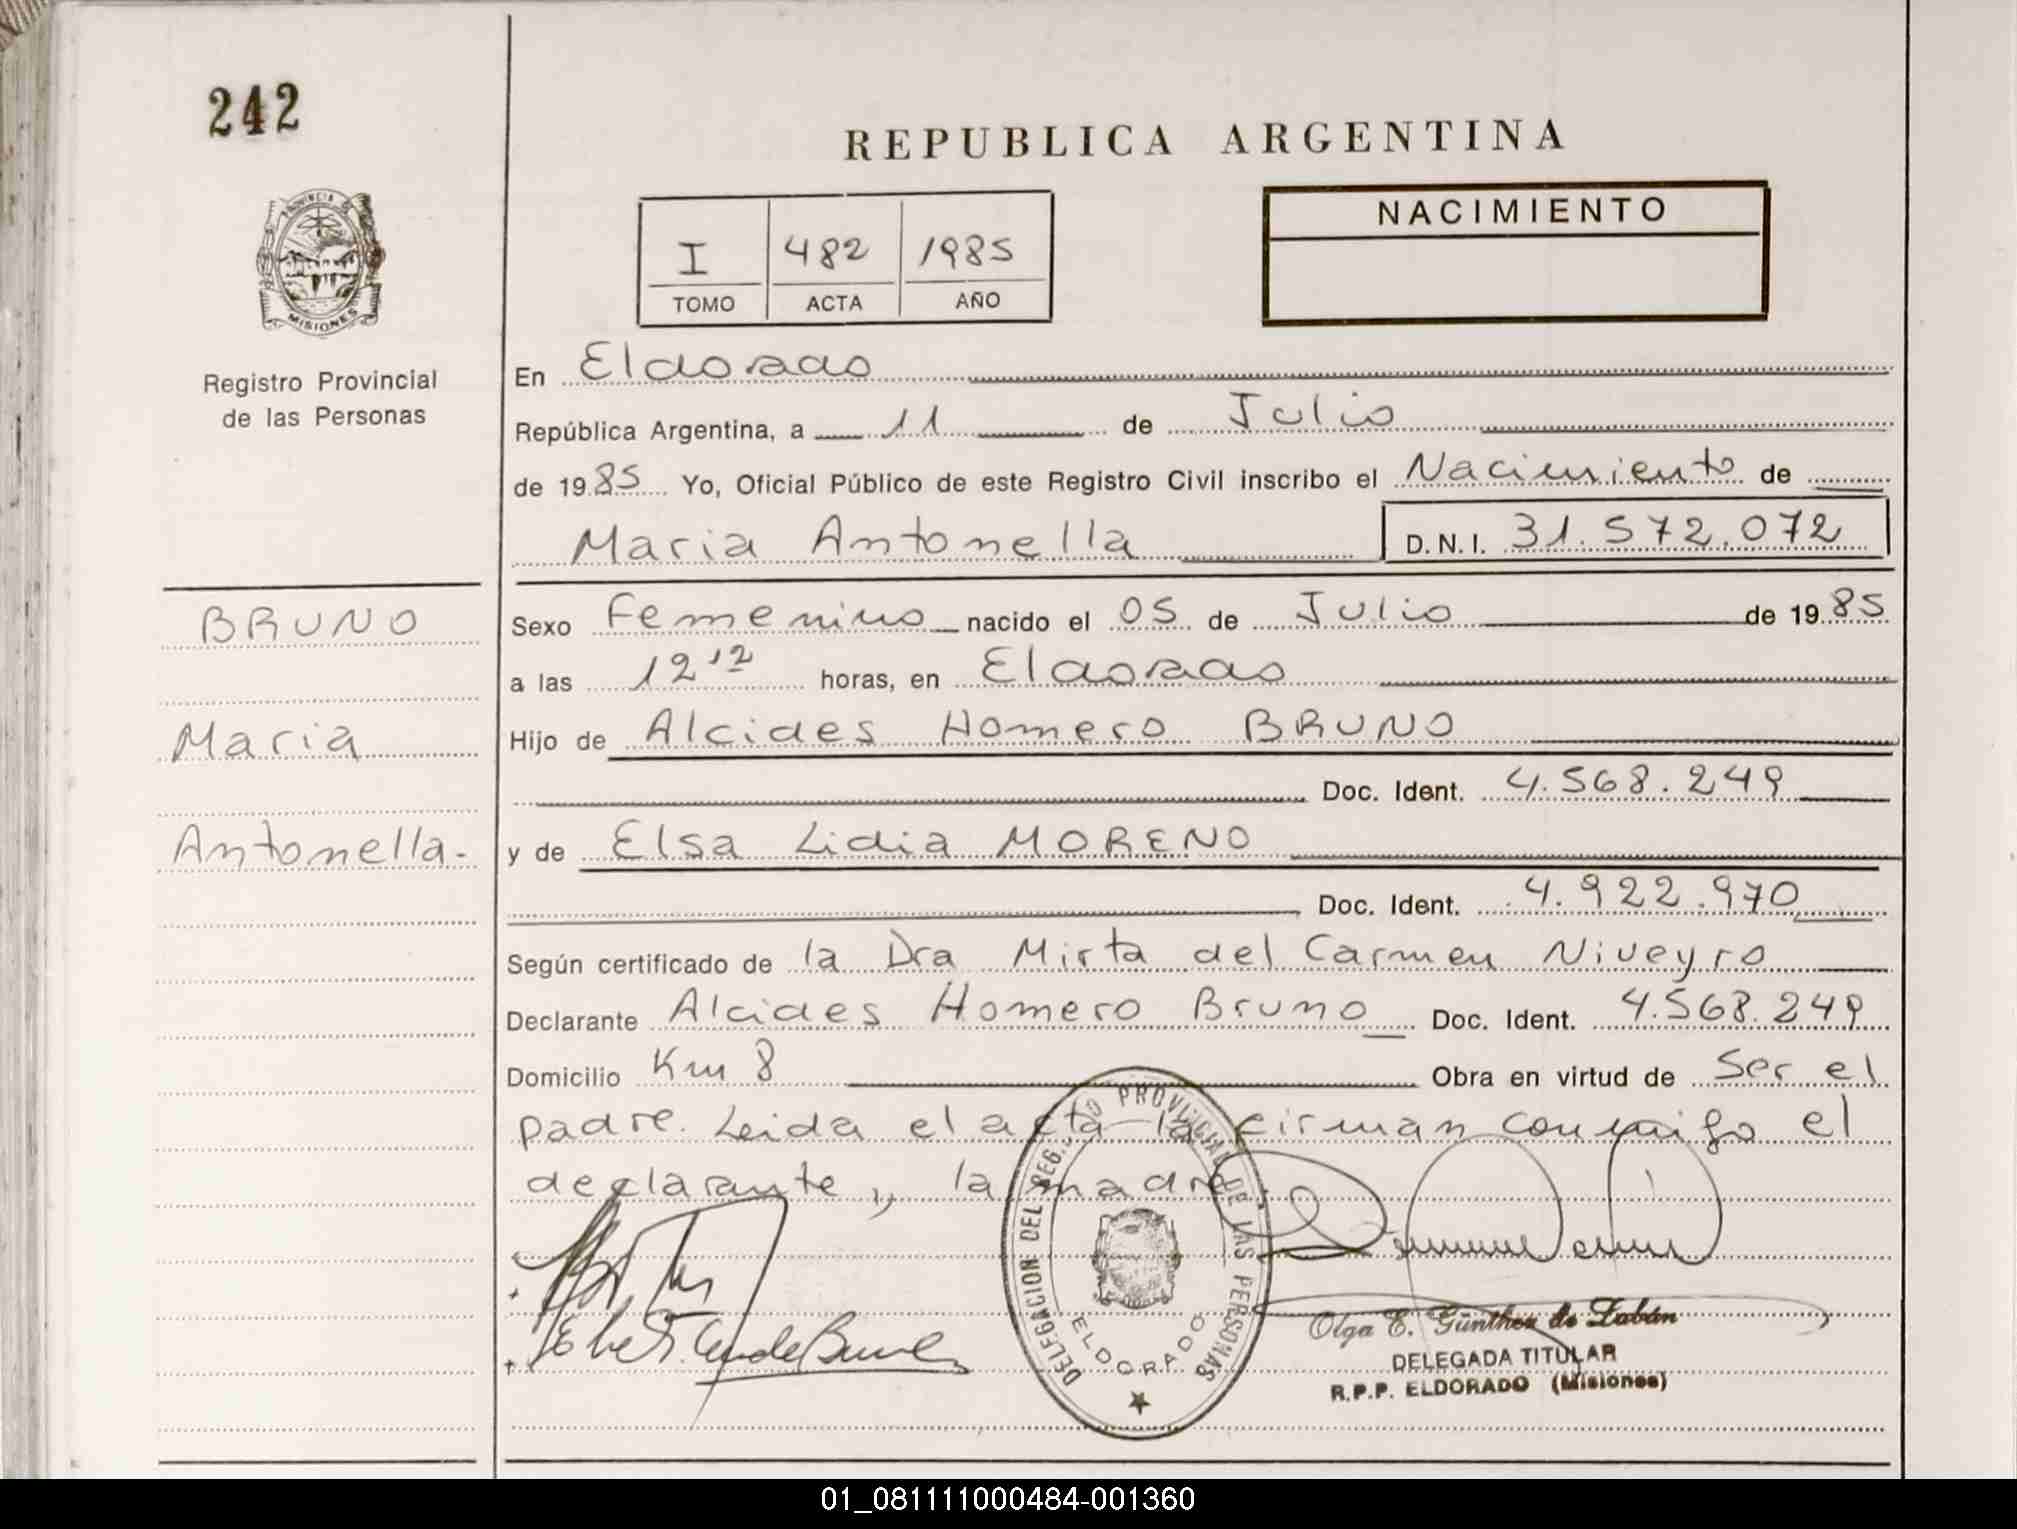 242
REPUBLICA ARGENTINA
PROVINCIA DE
MISIONES
Registro Provincial
de las Personas
I 482 1985
TOMO ACTA AÑO
NACIMIENTO
En Eldorado
República Argentina, a 11 de Julio
de 1985 Yo, Oficial Público de este Registro Civil inscribo el Nacimiento de
Maria Antonella D.N.I. 31.572.072
BRUNO
Maria
Antonella.-
Sexo Femenino nacido el 05 de Julio de 1985
a las 12 12 horas, en Eldorado
Hijo de Alcides Homero BRUNO
Doc. Ident. 4.568.249
y de Elsa Lidia MORENO
Doc. Ident. 4.922.970
Según certificado de la Dra Mirta del Carmen Niveyro
Declarante Alcides Homero Bruno Doc. Ident. 4.568.249
Domicilio Km 8 Obra en virtud de Ser el
padre. Leida el acta la firman conmigo el
declarante y la madre.
DELEGACION DEL REG. PROVINCIAL DE LAS PERSONAS
ELDORADO
Olga E. Günther de Zabán
DELEGADA TITULAR
R.P.P. ELDORADO (Misiones)
01_081111000484-001360